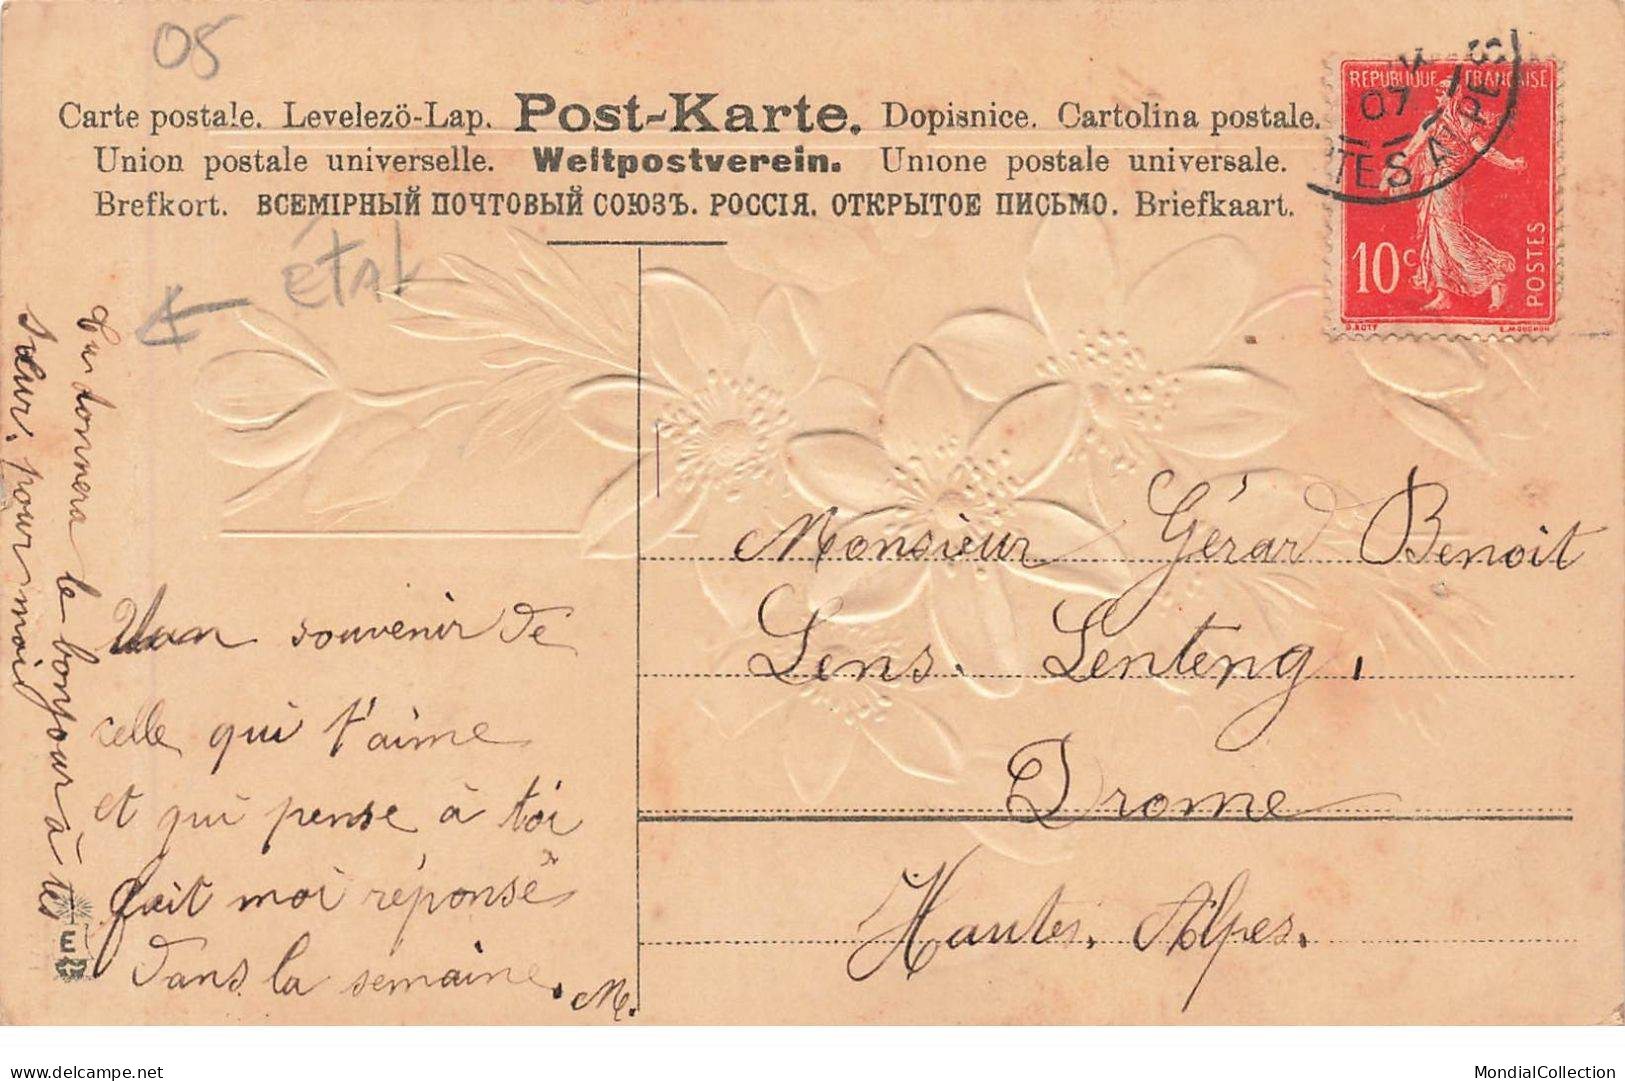 05
Carte postale. Levelezö-Lap. Post-Karte. Dopisnice. Cartolina postale.
Union postale universelle. Weltpostverein. Unione postale universale.
Brefkort. ВСЕМІРНЫЙ ПОЧТОВЫЙ СОЮЗЪ. РОССІЯ. ОТКРЫТОЕ ПИСЬМО. Briefkaart.
REPUBLIQUE FRANÇAISE
10c
POSTES
O. ROTY E. MOUCHON
07
TES ALPES
état
souvenir de
celle qui t'aime
et qui pense à toi
fait moi réponse
dans la semaine.
M.
Tu donnera le bonjour à tes
sœur. pour moi
Monsieur Gérard Benoit
Lens. Lenteng,
Drome
Hautes. Alpes.
delcampe.net
MondialCollection